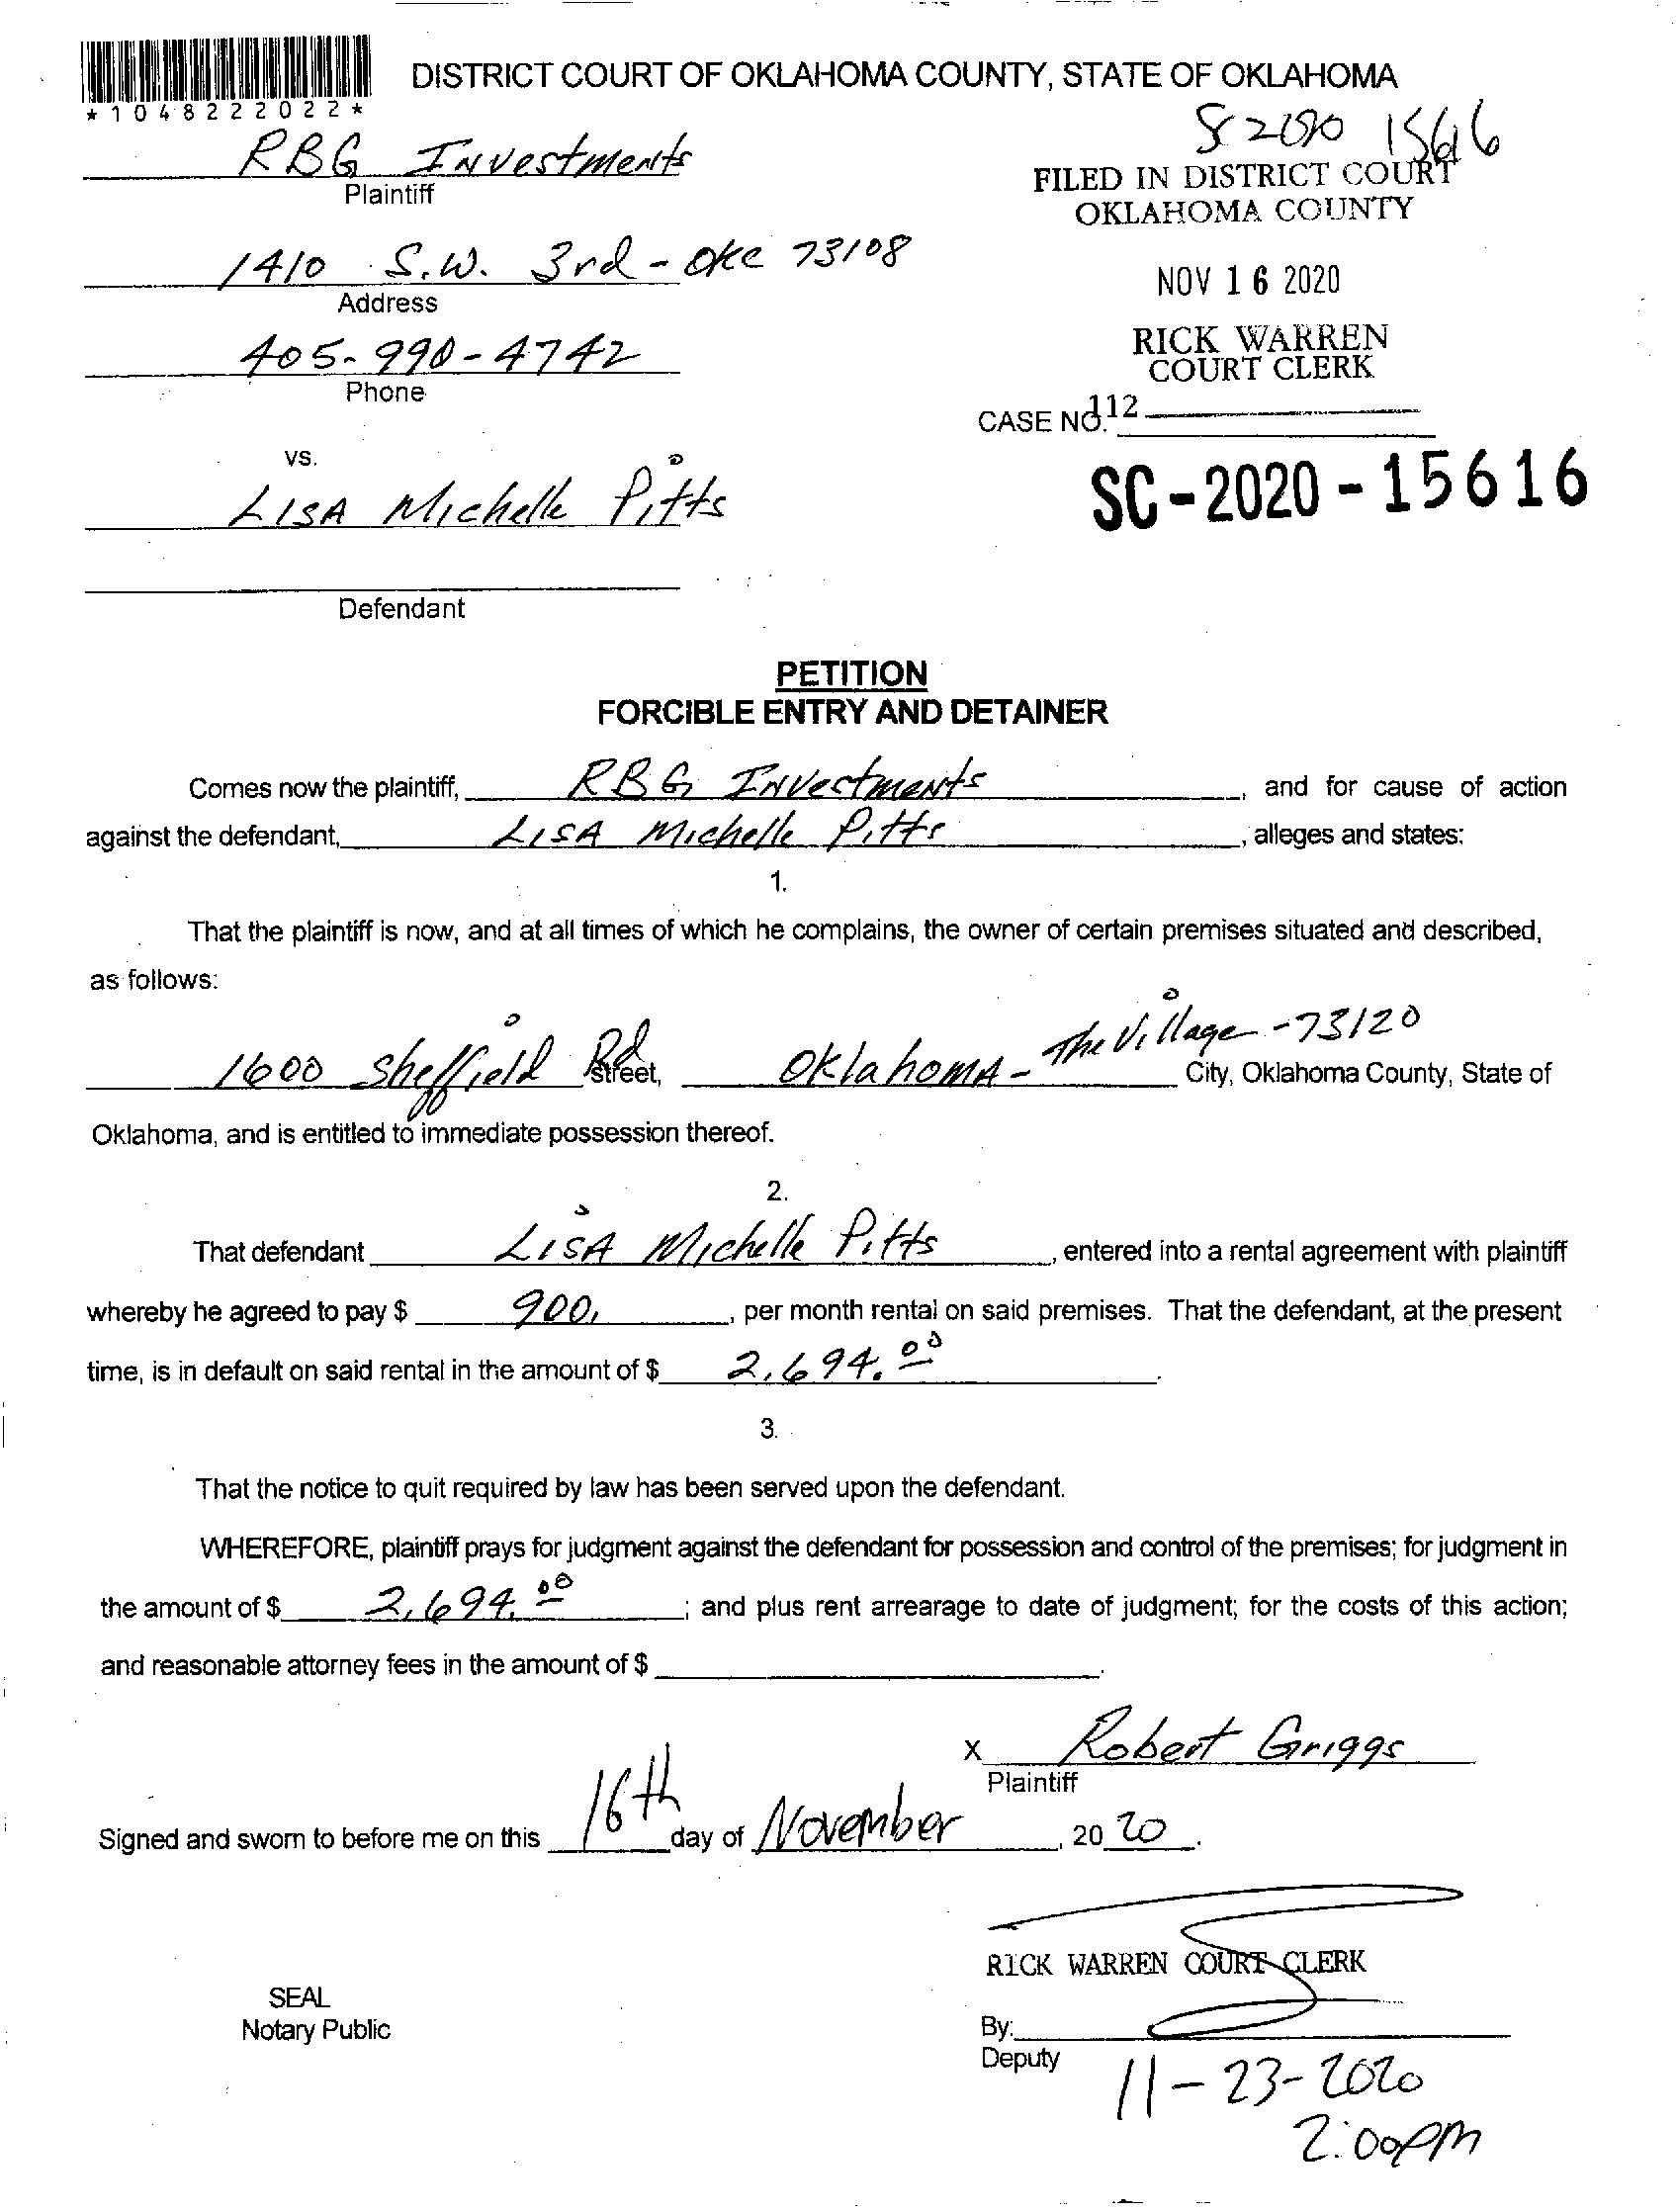 DISTRICT COURT OF OKLAHOMA COUNTY, STATE OF OKLAHOMA
*1048222022*
RBG Investments
Plaintiff
15616
FILED IN DISTRICT COURT
OKLAHOMA COUNTY
1410 S.W. 3rd - OKC 73108
Address
NOV 16 2020
405-990-4742
Phone
RICK WARREN
COURT CLERK
CASE NO. 112
vs.
LISA Michelle Pitts
SC-2020-15616
Defendant
PETITION
FORCIBLE ENTRY AND DETAINER
Comes now the plaintiff, RBG Investments, and for cause of action
against the defendant, LISA Michelle Pitts, alleges and states:
1.
That the plaintiff is now, and at all times of which he complains, the owner of certain premises situated and described,
as follows:
1600 Sheffield Rd Street, Oklahoma - The Village - 73120 City, Oklahoma County, State of
Oklahoma, and is entitled to immediate possession thereof.
2.
That defendant LISA Michelle Pitts, entered into a rental agreement with plaintiff
whereby he agreed to pay $ 900, per month rental on said premises. That the defendant, at the present
time, is in default on said rental in the amount of $ 2,694.00.
3.
That the notice to quit required by law has been served upon the defendant.
WHEREFORE, plaintiff prays for judgment against the defendant for possession and control of the premises; for judgment in
the amount of $ 2,694.00; and plus rent arrearage to date of judgment; for the costs of this action;
and reasonable attorney fees in the amount of $.
X Robert Griggs
Plaintiff
Signed and sworn to before me on this 16th day of November, 2020.
RICK WARREN COURT CLERK
SEAL
Notary Public
By:
Deputy
11-23-2020
2:00pm